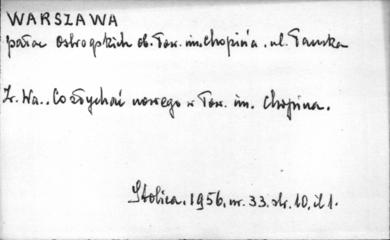 WARSZAWA
pałac Ostrogskich ob. Tow. im. Chopin'a. ul. Tamka
Z. Wa.. Co słychać nowego w Tow. im. Chopina.
Stolica. 1956. nr. 33. str. 10, il 1.